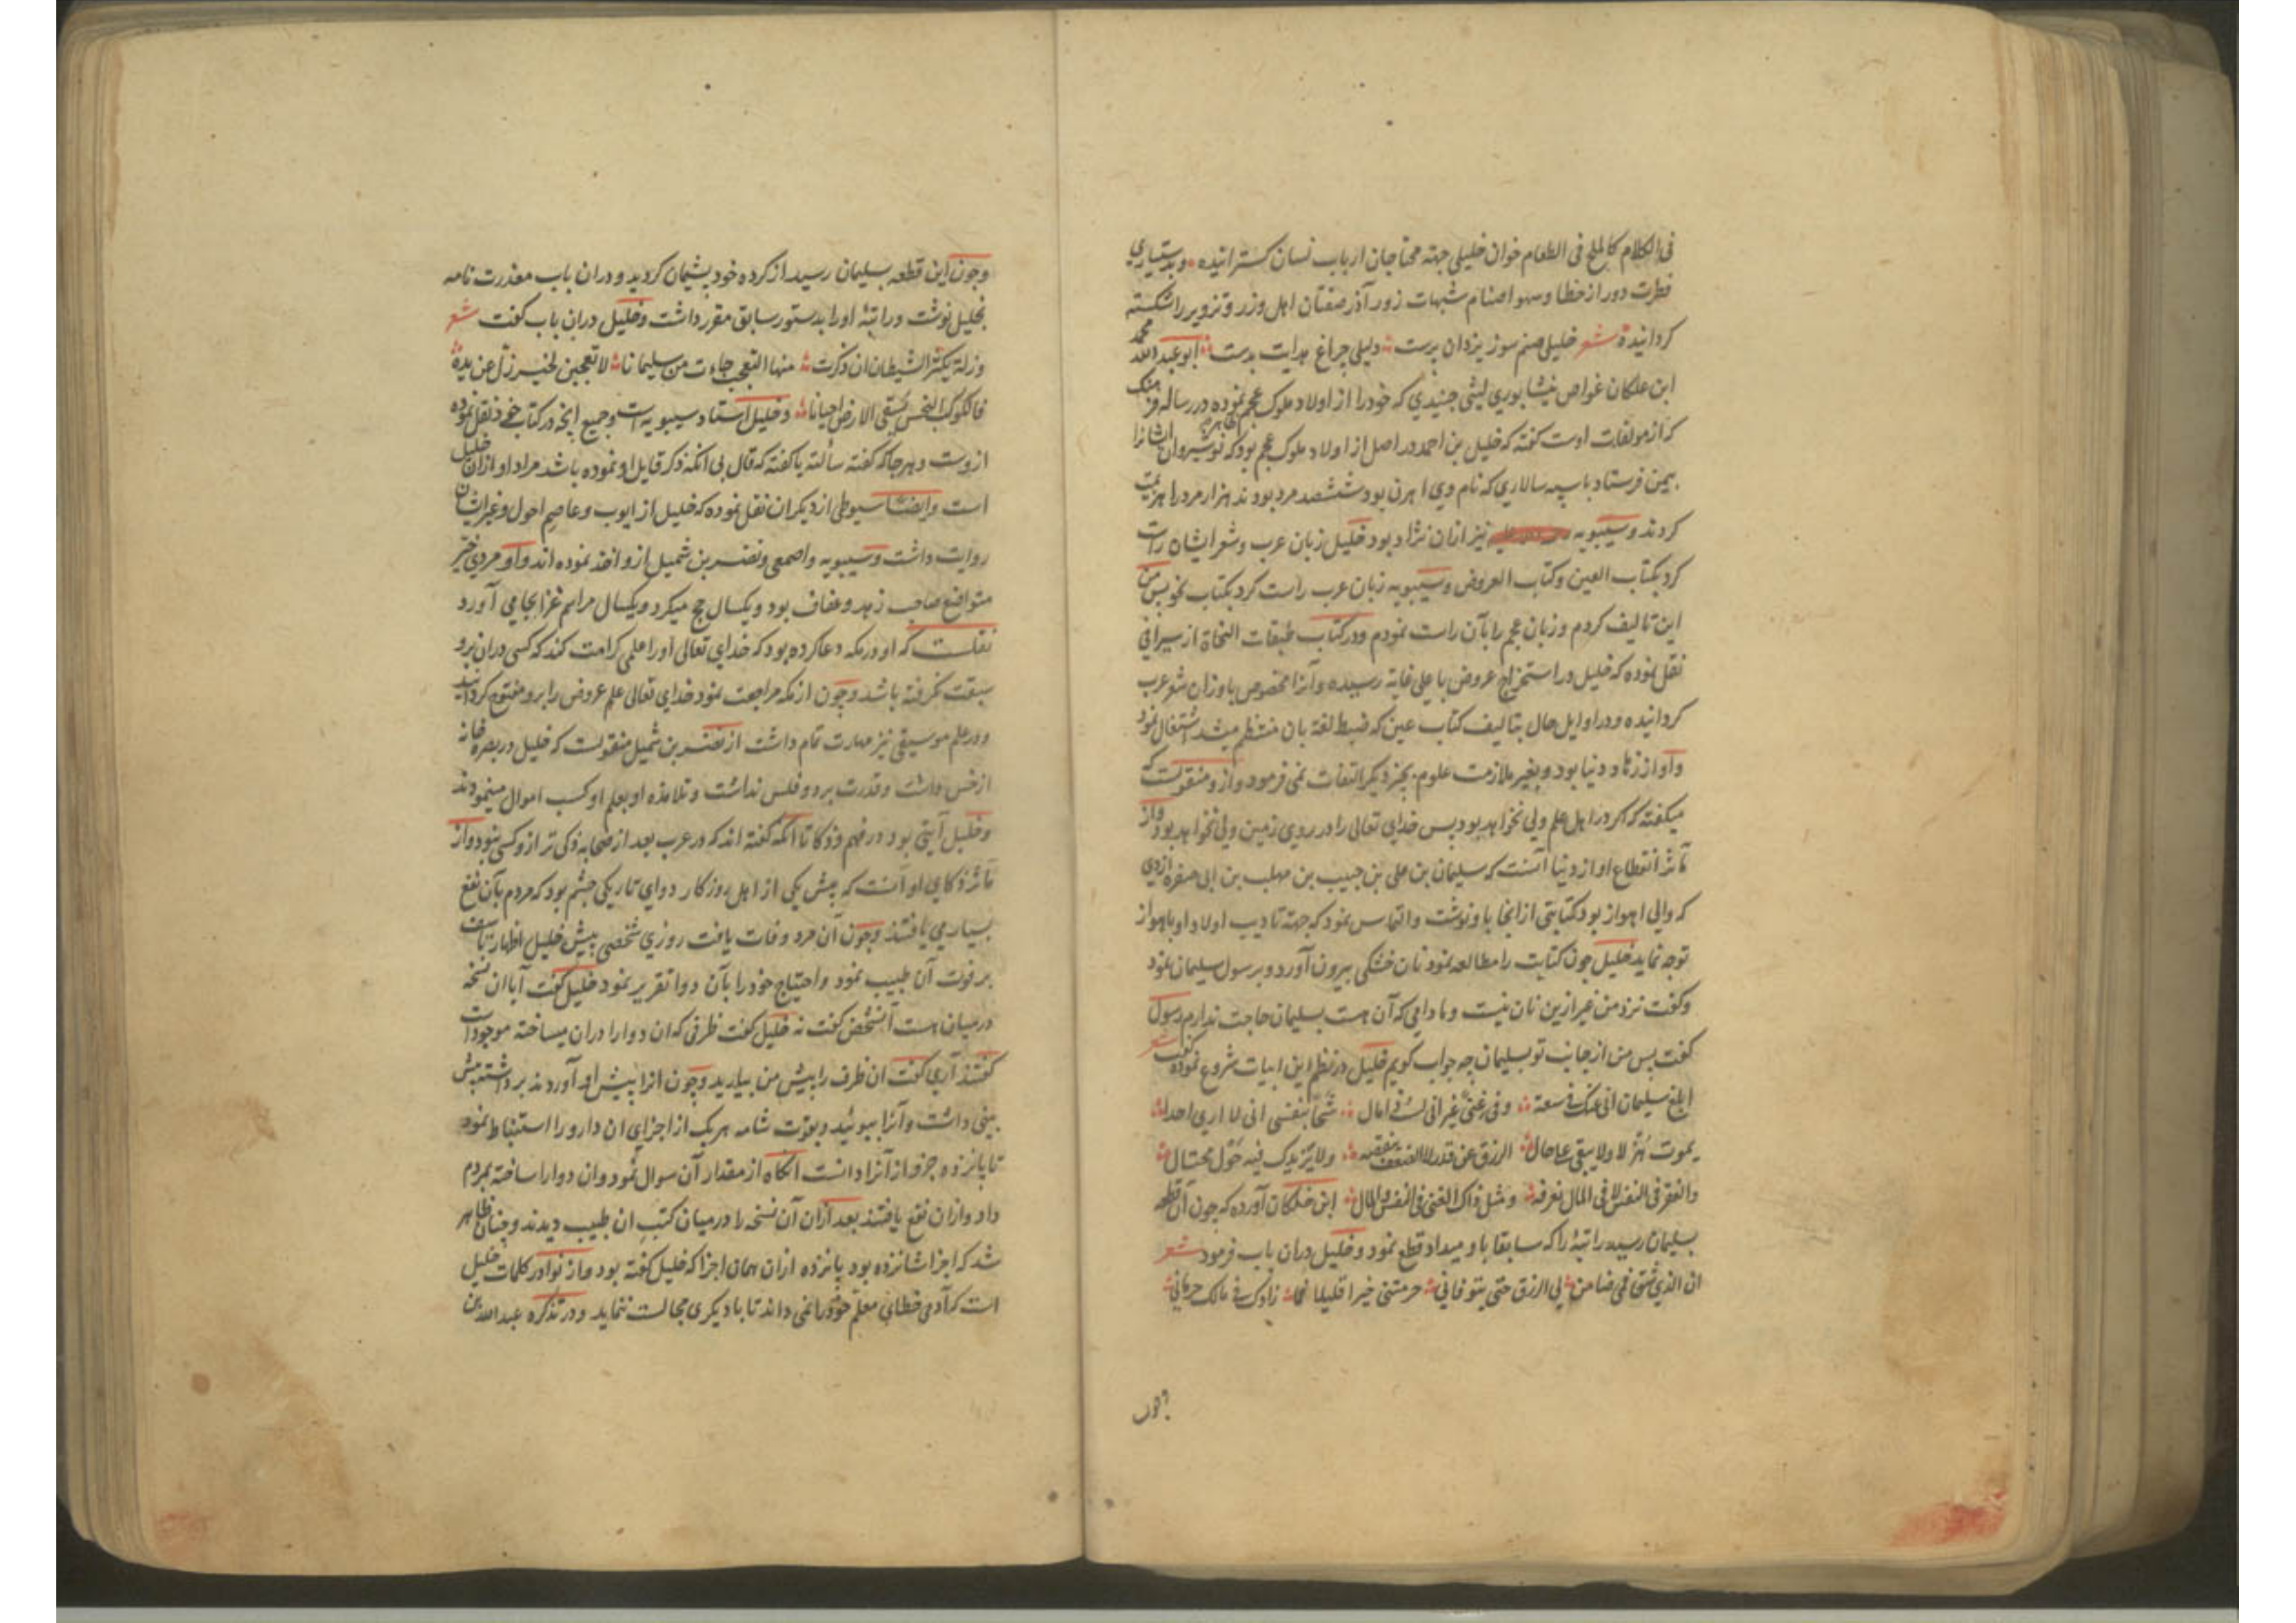 فی الکلام کالملح فی الطعام خوان خلیلی جهته محتاجان ارباب نسان کسترانیده و بدستیاری
فطرت دور از خطا و سهو اصنام شبهات زور آذر صفتان اهل وزر و تزویر را شکسته
کردانیده شعر خلیلی صنم سوز یزدان پرست دلیلی چراغ هدایت بدست ابو عبد الله محمد
ابن علکان غواص نیشابوری لیثی جنیدی که خود را از اولاد ملوک عجم نموده در رساله
که از مولفات اوست کفته که خلیل بن احمد در اصل از اولاد ملوک عجم بود که نوشیروان ایشانرا
بیمن فرستاد با سپه سالاری که نام وی اهرن بود ششصد مرد بودند هزار مرد را هزیمت
کردند و سیبویه نیز ازان نژاد بود خلیل زبان عرب و شعر ایشان راست
کرد بکتاب العین و کتاب العروض و سیبویه زبان عرب راست کرد بکتاب نحو پس من
این تالیف کردم و زبان عجم را بآن راست نمودم و در کتاب طبقات النحاة از سیرافی
نقل نموده که خلیل در استخراج عروض باعلی غایة رسیده و آنرا مخصوص باوزان شعر عرب
کردانیده و در اوایل حال بتالیف کتاب عین که ضبط لغة بان منتظم میشد اشتغال نمود
و او از زهاد دنیا بود و بغیر ملازمت علوم بچیز دیکر التفات نمی فرمود و از و منقولست که
میکفته که اکر در اهل علم ولی نخواهد بود پس خدای تعالی را در روی زمین ولی نخواهد بود و از
مآثر انقطاع او از دنیا آنست که سلیمان بن علی بن حبیب بن مهلب بن ابی صفره ازدی
که والی اهواز بود کتابتی از انجا باو نوشت و التماس نمود که جهة تادیب اولاد او باهواز
توجه نماید خلیل چون کتابت را مطالعه نمود نان خشکی بیرون آورد و برسول سلیمان نمود
و کفت نزد من غیر ازین نان نیست و مادامی که آن هست بسلیمان حاجت ندارم رسول
کفت پس من از جانب تو بسلیمان چه جواب کویم خلیل در نظم این ابیات شروع نموده کفت شعر
ابلغ سلیمان انی عنک فی سعة وفی غنی غیر انی لست ذا مال شحا بنفسی انی لا اری احدا
یموت هزلا ولا یبقی علی حال الرزق عن قدر لا الضعف ینقصه ولا یزیدک فیه حول محتال
والفقر فی النفس لا فی المال نعرفه ومثل ذاک الغنی فی النفس لا المال ابن خلکان آورده که چون آن قطعه
بسلیمان رسید راتبهٔ را که سابقا باو میداد قطع نمود و خلیل دران باب فرمود شعر
ان الذی شق فمی ضامن لی الرزق حتی یتوفانی حرمتنی خیرا قلیلا فما زادک فی مالک حرمانی
وچون
وچون این قطعه بسلیمان رسید از کرده خود پشیمان کردید و دران باب معذرت نامه
بخلیل نوشت و راتبهٔ او را بدستور سابق مقرر داشت و خلیل دران باب کفت شعر
وزلة یکثر الشیطان ان ذکرت منها التعجب جاءت من سلیمانا لا تعجبن لخیر زل عن یده
فالکوکب النحس یسقی الارض احیانا و خلیل استاد سیبویه است و جمیع انچه در کتاب خود نقل نموده
ازوست و هر جا که کفته سألته یا کفته که قال بی انکه ذکر قایل او نموده باشد مراد او ازان خلیل
است و ایضا سیوطی از دیکران نقل نموده که خلیل از ایوب و عاصم احول و غیر ایشان
روایت داشت و سیبویه و اصمعی و نضر بن شمیل از و اخذ نموده اند و او مردی خیر
متواضع صاحب زهد و عفاف بود و یکسال حج میکرد و یکسال مراسم غزا بجای می آورد
نقلست که او در مکه دعا کرده بود که خدای تعالی او را علمی کرامت کند که کسی دران برو
سبقت نکرفته باشد و چون از مکه مراجعت نمود خدای تعالی علم عروض را برو مفتوح کردانید
و در علم موسیقی نیز مهارت تمام داشت از نضر بن شمیل منقولست که خلیل در بصره خانه
از خس داشت و قدرت بر دو فلس نداشت و تلامذه او بعلم او کسب اموال مینمودند
و خلیل آیتی بود در فهم و ذکا تا انکه کفته اند که در عرب بعد از صحابه ذکی تر از و کسی نبود و از
مآثر ذکای او آنست که پیش یکی از اهل روزکار دوای تاریکی چشم بود که مردم بآن نفع
بسیاری یافتند و چون آن مرد وفات یافت روزی شخصی پیش خلیل اظهار تاسف
بر فوت آن طبیب نمود و احتیاج خود را بآن دوا تقریر نمود خلیل کفت آیا ان نسخه
درمیان هست آنشخص کفت نه خلیل کفت ظرفی که ان دوا را دران میساخته موجود است
کفتند آری کفت ان ظرف را پیش من بیارید و چون انرا پیش او آوردند برداشته پیش
بینی داشت و آنرا ببوئید و بقوت شامه هر یک از اجزای ان دارو را استنباط نمود
تا پانزده جزو از آنرا دانست انکاه از مقدار آن سوال نمود و ان دوا را ساخته بمردم
داد و ازان نفع یافتند بعد ازان آن نسخه را درمیان کتب ان طبیب دیدند و چنان ظاهر
شد که اجزا شانزده بود پانزده ازان همان اجزا که خلیل کفته بود و از نوادر کلمات خلیل
است که آدمی خطای معلم خود را نمی داند تا با دیکری مجالست ننماید و در تذکره عبد الله بن